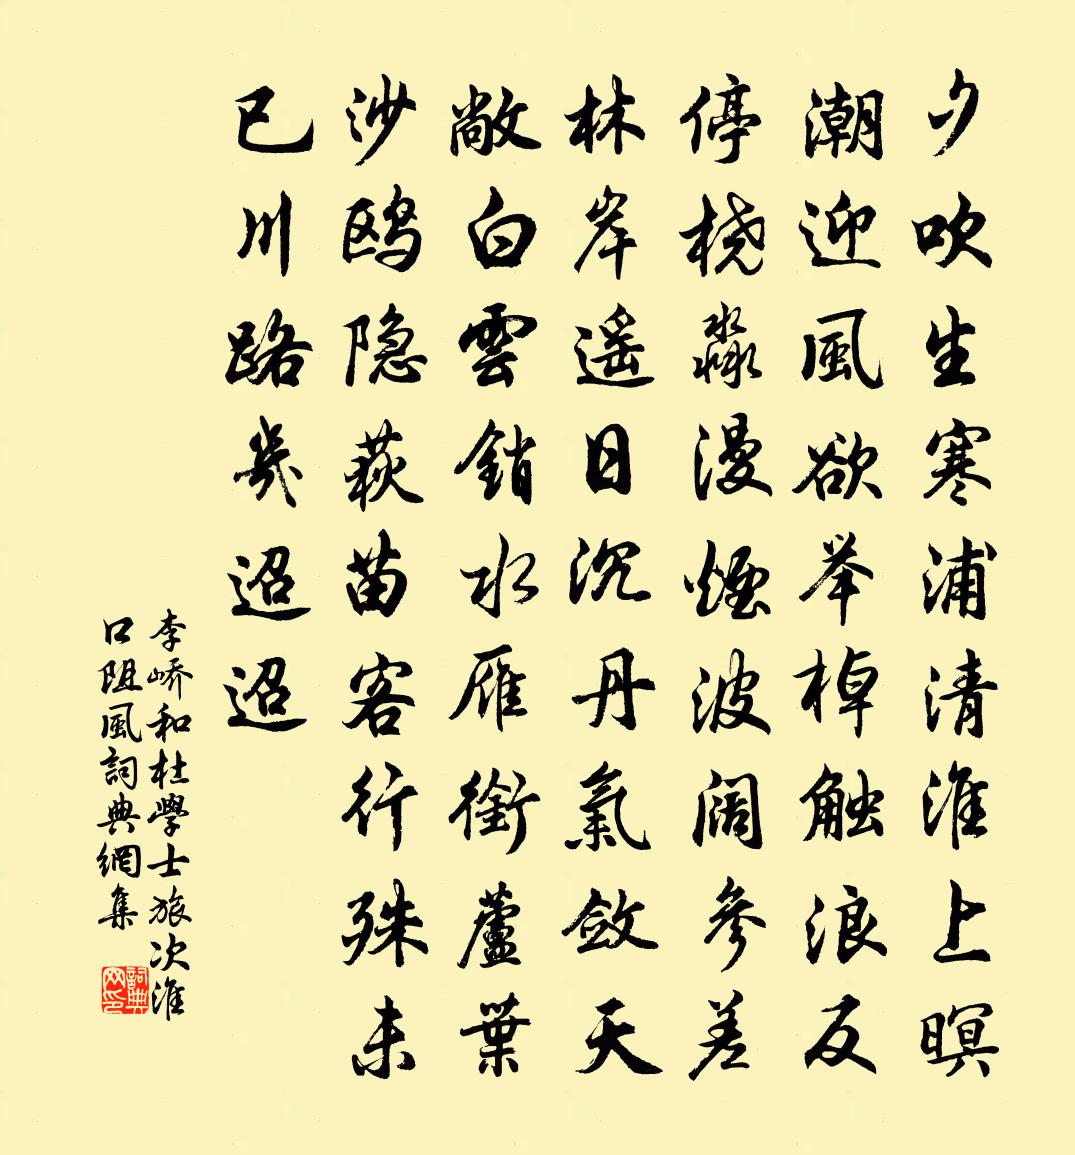 夕吹生寒浦清淮上暝
潮迎風欲举棹触浪反
停桡淼漫煙波阔參差
林岸遥日沉丹氣敛天
敞白雲銷水雁銜蘆葉
沙鸥隐荻苗客行殊未
已川路幾迢迢
李嶠和杜學士旅次淮
口阻風詞典網集
詞典网印